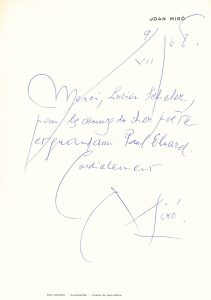 JOAN MIRÓ
9/
VII
68.
Merci, Lucien Scheler,
pour les œuvres du cher poète
et grand ami Paul Eluard.
Cordialement
Miró.